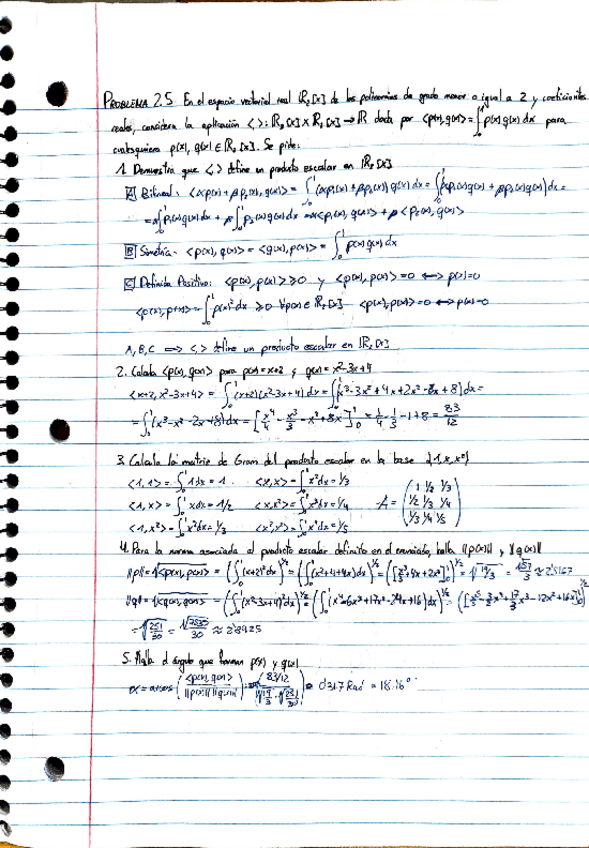 PROBLEMA 2.5 En el espacio vectorial real ℝ₂[x] de los polinomios de grado menor o igual a 2 y coeficientes
reales, considera la aplicación < >: ℝ₂[x] x ℝ₂[x] → ℝ dada por <p(x), q(x)> = ∫₀¹ p(x)q(x) dx para
cualesquiera p(x), q(x) ∈ ℝ₂[x]. Se pide:
1. Demuestra que <,> define un producto escalar en ℝ₂[x]
A Bilineal: <αp₁(x) + βp₂(x), q(x)> = ∫₀¹ (αp₁(x) + βp₂(x)) q(x) dx = ∫₀¹ (αp₁(x)q(x) + βp₂(x)q(x)) dx =
= α∫₀¹ p₁(x)q(x) dx + β∫₀¹ p₂(x)q(x) dx = α<p₁(x), q(x)> + β<p₂(x), q(x)>
B Simétrica - <p(x), q(x)> = <q(x), p(x)> = ∫₀¹ p(x)q(x) dx
C Definida Positiva: <p(x), p(x)> ≥ 0 y <p(x), p(x)> = 0 ⟺ p(x) = 0
<p(x), p(x)> = ∫₀¹ p(x)² dx ≥ 0 ∀p(x) ∈ ℝ₂[x] <p(x), p(x)> = 0 ⟺ p(x) = 0
A, B, C ⟹ <,> define un producto escalar en ℝ₂[x]
2. Calcula <p(x), q(x)> para p(x) = x+2 y q(x) = x²-3x+4
<x+2, x²-3x+4> = ∫₀¹ (x+2)(x²-3x+4) dx = ∫₀¹ (x³-3x²+4x+2x²-6x+8) dx =
= ∫₀¹ (x³-x²-2x+8) dx = [x⁴/4 - x³/3 - x² + 8x]₀¹ = 1/4 - 1/3 - 1 + 8 = 83/12
3. Calcula la matriz de Gram del producto escalar en la base {1, x, x²}
<1,1> = ∫₀¹ 1 dx = 1 <x,x> = ∫₀¹ x² dx = 1/3
<1,x> = ∫₀¹ x dx = 1/2 <x,x²> = ∫₀¹ x³ dx = 1/4 A = (1 1/2 1/3 1/2 1/3 1/4 1/3 1/4 1/5)
<1,x²> = ∫₀¹ x² dx = 1/3 <x²,x²> = ∫₀¹ x⁴ dx = 1/5
4. Para la norma asociada al producto escalar definido en el enunciado, halla ||p(x)|| y ||q(x)||
||p|| = √<p(x), p(x)> = (∫₀¹ (x+2)² dx)^½ = (∫₀¹ (x²+4+4x) dx)^½ = ([x³/3 + 4x + 2x²]₀¹)^½ = √(19/3) = √57/3 ≈ 2'5167
||q|| = √<q(x), q(x)> = (∫₀¹ (x²-3x+4)² dx)^½ = (∫₀¹ (x⁴-6x³+17x²-24x+16) dx)^½ = ([x⁵/5 - 3/2 x⁴ + 17/3 x³ - 12x² + 16x]₀¹)^½
= √(251/30) = √7530/30 ≈ 2'8925
5. Halla el ángulo que forman p(x) y q(x)
α = arccos (<p(x), q(x)> / ||p(x)|| ||q(x)||) = (83/12 / √(19/3) · √(251/30)) = 0'317 Rad = 18.16°